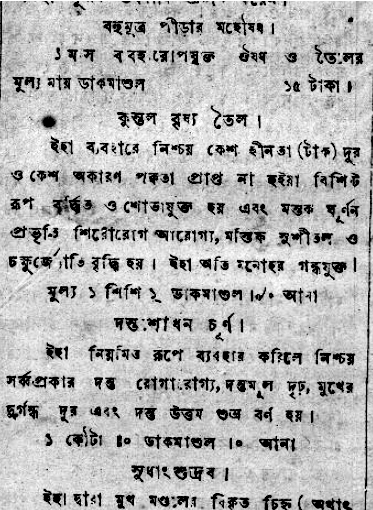 বহুমূত্র পীড়ার মহৌষধ।
১ মাস ব্যবহারোপযুক্ত ঔষধ ও তৈলের
মূল্য মায় ডাকমাশুল ১৫ টাকা।
কুন্তল বৃষ্য তৈল।
ইহা ব্যবহারে নিশ্চয় কেশ হীনতা (টাক) দূর
ও কেশ অকারণ পক্বতা প্রাপ্ত না হইয়া বিশিষ্ট
রূপ বৃদ্ধিত ও শোভাযুক্ত হয় এবং মস্তক ঘূর্ণন
প্রভৃতি শিরোরোগ আরোগ্য, মস্তিষ্ক সুশীতল ও
চক্ষুর্জ্যোতি বৃদ্ধি হয়। ইহা অতি মনোহর গন্ধযুক্ত।
মূল্য ১ শিশি ১৲ ডাকমাশুল ।৵০ আনা
দন্তশোধন চূর্ণ।
ইহা নিয়মিত রূপে ব্যবহার করিলে নিশ্চয়
সর্ব্বপ্রকার দন্ত রোগারোগ্য, দন্তমূল দৃঢ়, মুখের
দুর্গন্ধ দূর এবং দন্ত উত্তম শুভ্র বর্ণ হয়।
১ কৌটা ॥০ ডাকমাশুল ।০ আনা
সুধাংশুদ্রব।
ইহা দ্বারা মুখ মণ্ডলের বিকৃত চিহ্ন (অর্থাৎ